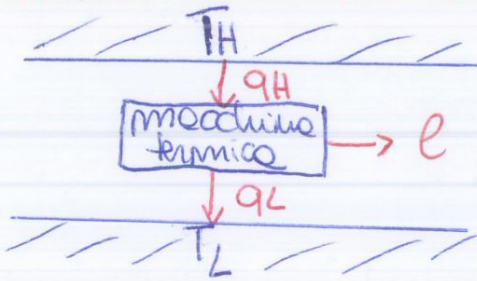 TH
qH
macchina
termica
l
qL
TL